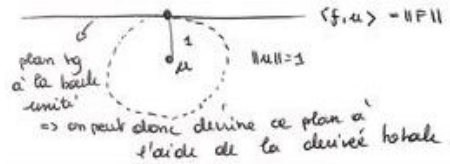 ⟨f, u⟩ = ‖F‖
1
plan tg
à la boule
unité
u
‖u‖=1
=> on peut donc décrire ce plan à
l'aide de la dérivée totale